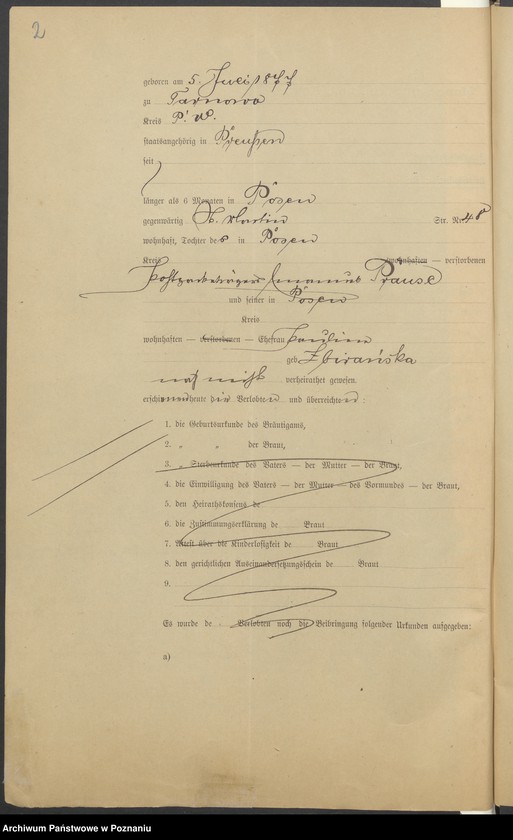 2
geboren am 5. Juli 1877
zu Tarnowo
Kreis P. W.
staatsangehörig in Preußen
seit
länger als 6 Monaten in Posen
gegenwärtig St. Martin Str. Nr. 48
wohnhaft, Tochter des in Posen
Kreis wohnhaften — verstorbenen
Postpacketträgers Emanuel Prause
und seiner in Posen
Kreis
wohnhaften — verstorbenen — Ehefrau Pauline
geb. Zbirańska
noch nicht verheirathet gewesen.
erschienen heute die Verlobten und überreichten:
1. die Geburtsurkunde des Bräutigams,
2. „ „ der Braut,
3. „ Sterbeurkunde des Vaters — der Mutter — der Braut,
4. die Einwilligung des Vaters — der Mutter — des Vormundes — der Braut,
5. den Heirathskonsens de
6. die Zustimmungserklärung de Braut
7. Attest über die Kinderlosigkeit de Braut
8. den gerichtlichen Auseinandersetzungsschein de Braut
9.
Es wurde de Verlobten noch die Beibringung folgender Urkunden aufgegeben:
a)
Archiwum Państwowe w Poznaniu